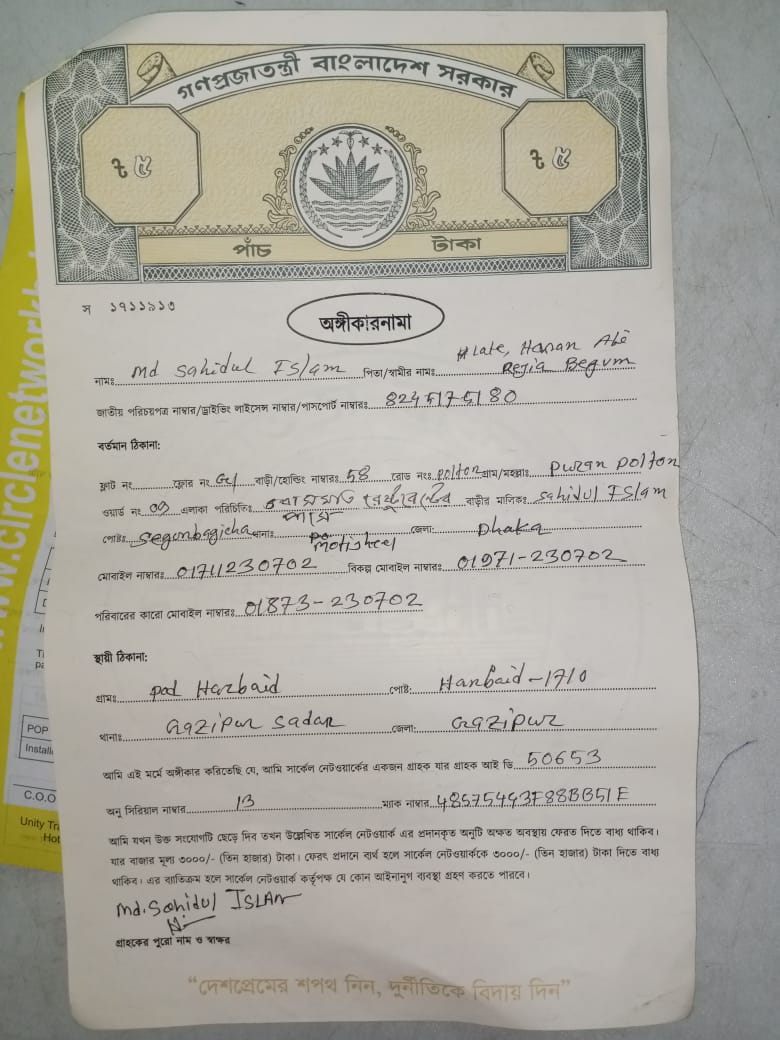 গণপ্রজাতন্ত্রী বাংলাদেশ সরকার
৳ ৫
৳ ৫
পাঁচ টাকা
স ১৭১১৯১৩
অঙ্গীকারনামা
নামঃ Md Sahidul ISlam পিতা/স্বামীর নামঃ Late, Hanan Abe
Regia Begum
জাতীয় পরিচয়পত্র নাম্বার/ড্রাইভিং লাইসেন্স নাম্বার/পাসপোর্ট নাম্বারঃ 8245175180
বর্তমান ঠিকানা:
ফ্লাট নং ফ্লোর নং G/ বাড়ী/হোল্ডিং নাম্বারঃ 58 রোড নংঃ polton গ্রাম/মহল্লাঃ puran polton
ওয়ার্ড নং 09 এলাকা পরিচিতিঃ বাড়ীর মালিকঃ Sahidul ISlam
পাসে
পোষ্টঃ Segunbagicha থানাঃ Motijheel জেলা: Dhaka
মোবাইল নাম্বারঃ 01711230702 বিকল্প মোবাইল নাম্বারঃ 01971-230702
পরিবারের কারো মোবাইল নাম্বারঃ 01873-230702
স্থায়ী ঠিকানা:
গ্রামঃ Harbaid পোষ্ট: Harbaid-1710
থানাঃ Gazipur Sadar জেলা: Gazipur
আমি এই মর্মে অঙ্গীকার করিতেছি যে, আমি সার্কেল নেটওয়ার্কের একজন গ্রাহক যার গ্রাহক আই ডি 50653
অনু সিরিয়াল নাম্বার 13 ম্যাক নাম্বার 48575443F88BB51E
আমি যখন উক্ত সংযোগটি ছেড়ে দিব তখন উল্লেখিত সার্কেল নেটওয়ার্ক এর প্রদানকৃত অনুটি অক্ষত অবস্থায় ফেরত দিতে বাধ্য থাকিব।
যার বাজার মূল্য ৩০০০/- (তিন হাজার) টাকা। ফেরৎ প্রদানে ব্যর্থ হলে সার্কেল নেটওয়ার্ককে ৩০০০/- (তিন হাজার) টাকা দিতে বাধ্য
থাকিব। এর ব্যতিক্রম হলে সার্কেল নেটওয়ার্ক কর্তৃপক্ষ যে কোন আইনানুগ ব্যবস্থা গ্রহণ করতে পারবে।
Md. Sahidul ISLAM
গ্রাহকের পুরো নাম ও স্বাক্ষর
“দেশপ্রেমের শপথ নিন, দুর্নীতিকে বিদায় দিন”
www.circlenetwork
POP
Install
C.O.O
Unity Tr
Hot